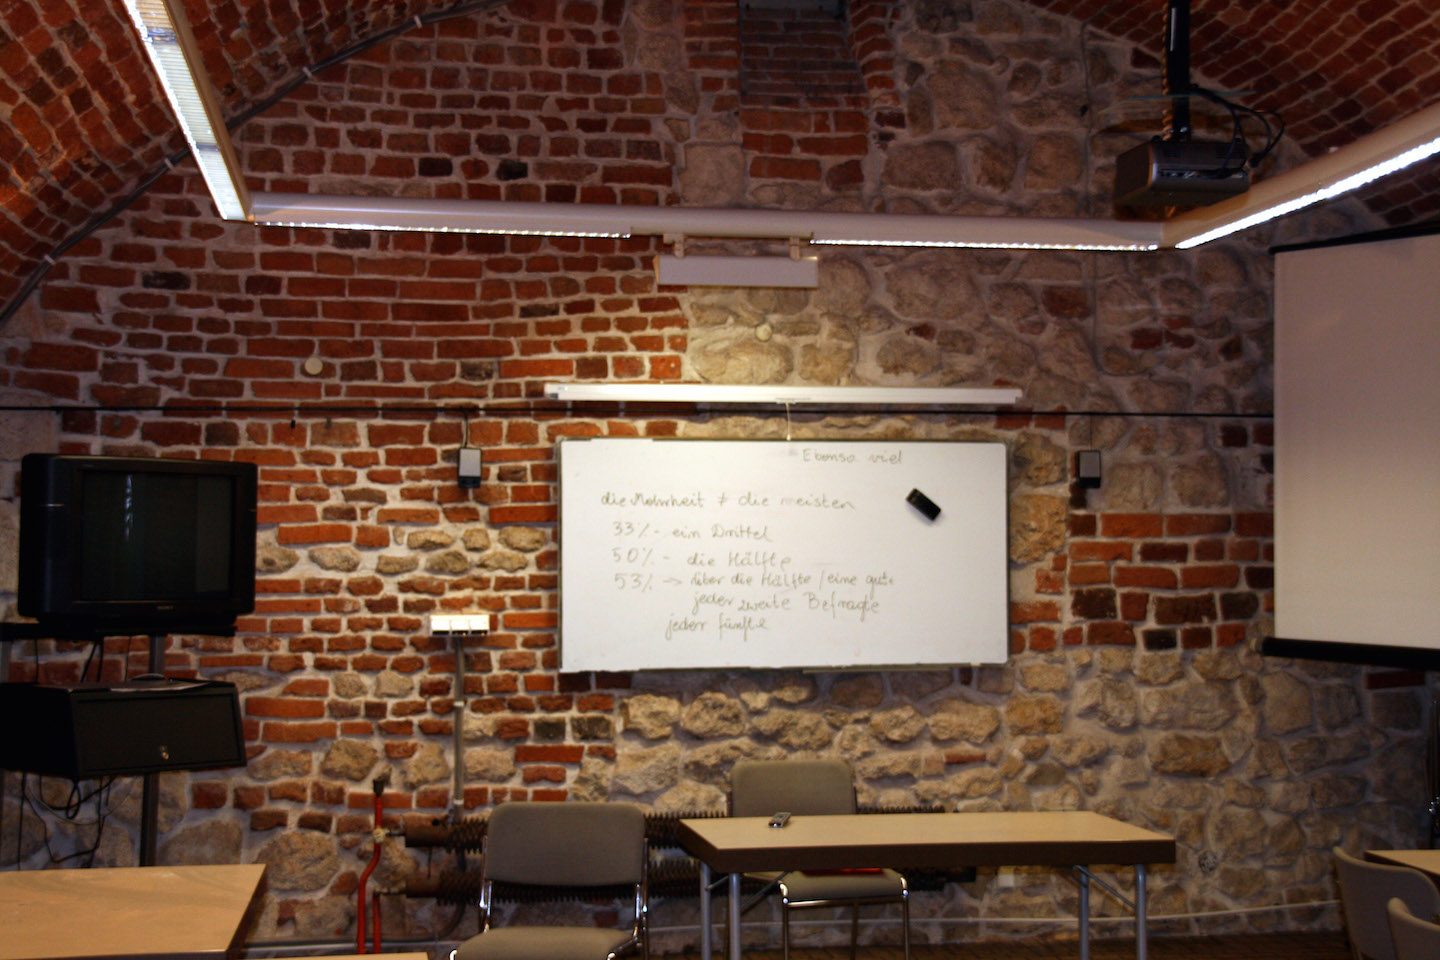 Ebenso viel
die Mehrheit ≠ die meisten
33% - ein Drittel
50% - die Hälfte
53% → über die Hälfte / eine gute
jeder zweite Befragte
jeder fünfte
SONY